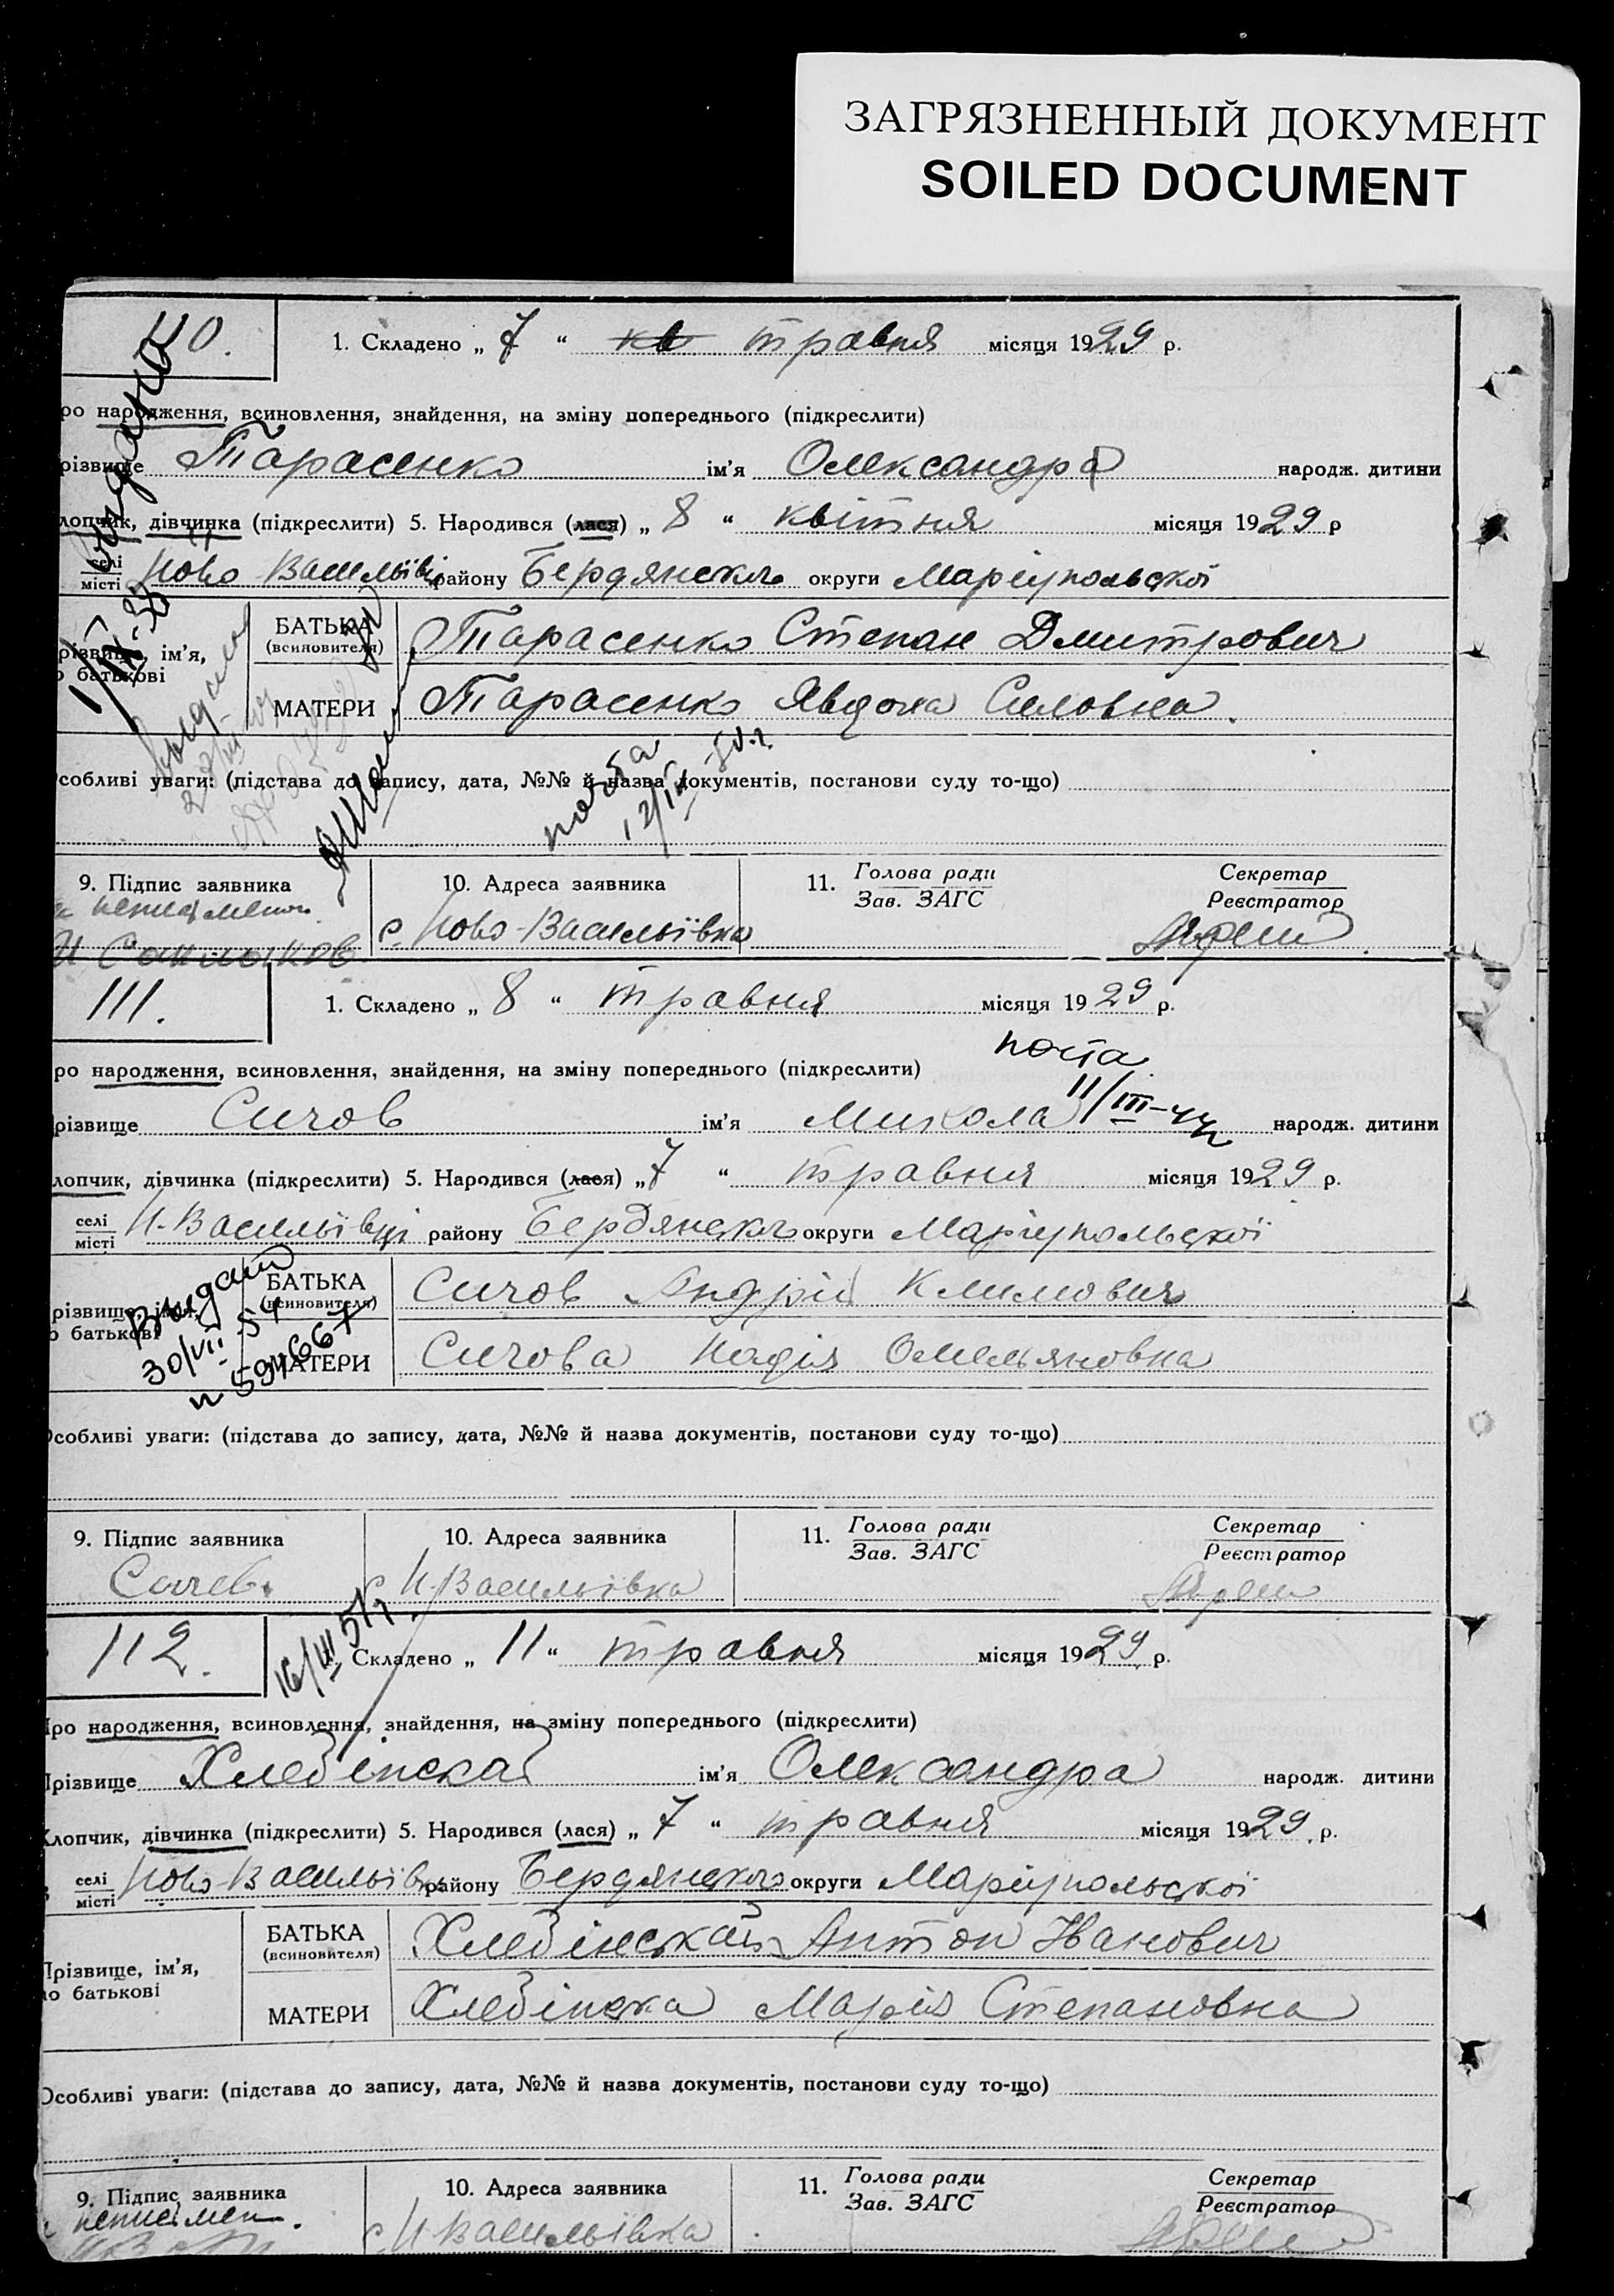 ЗАГРЯЗНЕННЫЙ ДОКУМЕНТ
SOILED DOCUMENT
110.
1. Складено „ 7 “ кв травня місяця 1929 р.
ро народження, всиновлення, знайдення, на зміну попереднього (підкреслити)
різвище Тарасенко ім’я Олександра народж. дитини
лопчик, дівчинка (підкреслити) 5. Народився (лася) „ 8 “ квітня місяця 1929 р
селі
місті Ново Васильївці району Бердянского округи Маріупольської
різвище, ім’я,
о батькові
БАТЬКА
(всиновителя) Тарасенко Степан Дмитрович
МАТЕРИ Тарасенко Явдоха Силовна.
видано
1/IX-38
почта
12/IX
собливі уваги: (підстава до запису, дата, №№ й назва документів, постанови суду то-що)
9. Підпис заявника
10. Адреса заявника
11. Голова ради
Зав. ЗАГС
Секретар
Реєстратор
с. Ново-Васильївка
111.
1. Складено „ 8 “ травня місяця 1929 р.
почта
ро народження, всиновлення, знайдення, на зміну попереднього (підкреслити)
11/III-44
різвище Сичов ім’я Микола народж. дитини
лопчик, дівчинка (підкреслити) 5. Народився (лася) „ 7 “ травня місяця 1929 р.
селі
місті Н-Васильївці району Бердянского округи Маріупольської
різвище, ім’я,
о батькові
БАТЬКА
(всиновителя) Сичов Андрій Климович
МАТЕРИ Сичова Надія Омельяновна
Видано
30/VII 54
н 594667
Особливі уваги: (підстава до запису, дата, №№ й назва документів, постанови суду то-що)
9. Підпис заявника
10. Адреса заявника
11. Голова ради
Зав. ЗАГС
Секретар
Реєстратор
Сичев.
с Н-Васильівка
112.
16/III 57
1. Складено „ 11 “ травня місяця 1929 р.
Про народження, всиновлення, знайдення, на зміну попереднього (підкреслити)
Прізвище Хлебінская ім’я Олександра народж. дитини
Хлопчик, дівчинка (підкреслити) 5. Народився (лася) „ 7 “ травня місяця 1929 р.
в селі
місті Ново-Васильівці району Бердянского округи Маріупольської
Прізвище, ім’я,
по батькові
БАТЬКА
(всиновителя) Хлебінський Антон Іванович
МАТЕРИ Хлебінска Марія Степановна
Особливі уваги: (підстава до запису, дата, №№ й назва документів, постанови суду то-що)
9. Підпис заявника
10. Адреса заявника
11. Голова ради
Зав. ЗАГС
Секретар
Реєстратор
неписьмен.
с Н-Васильівка